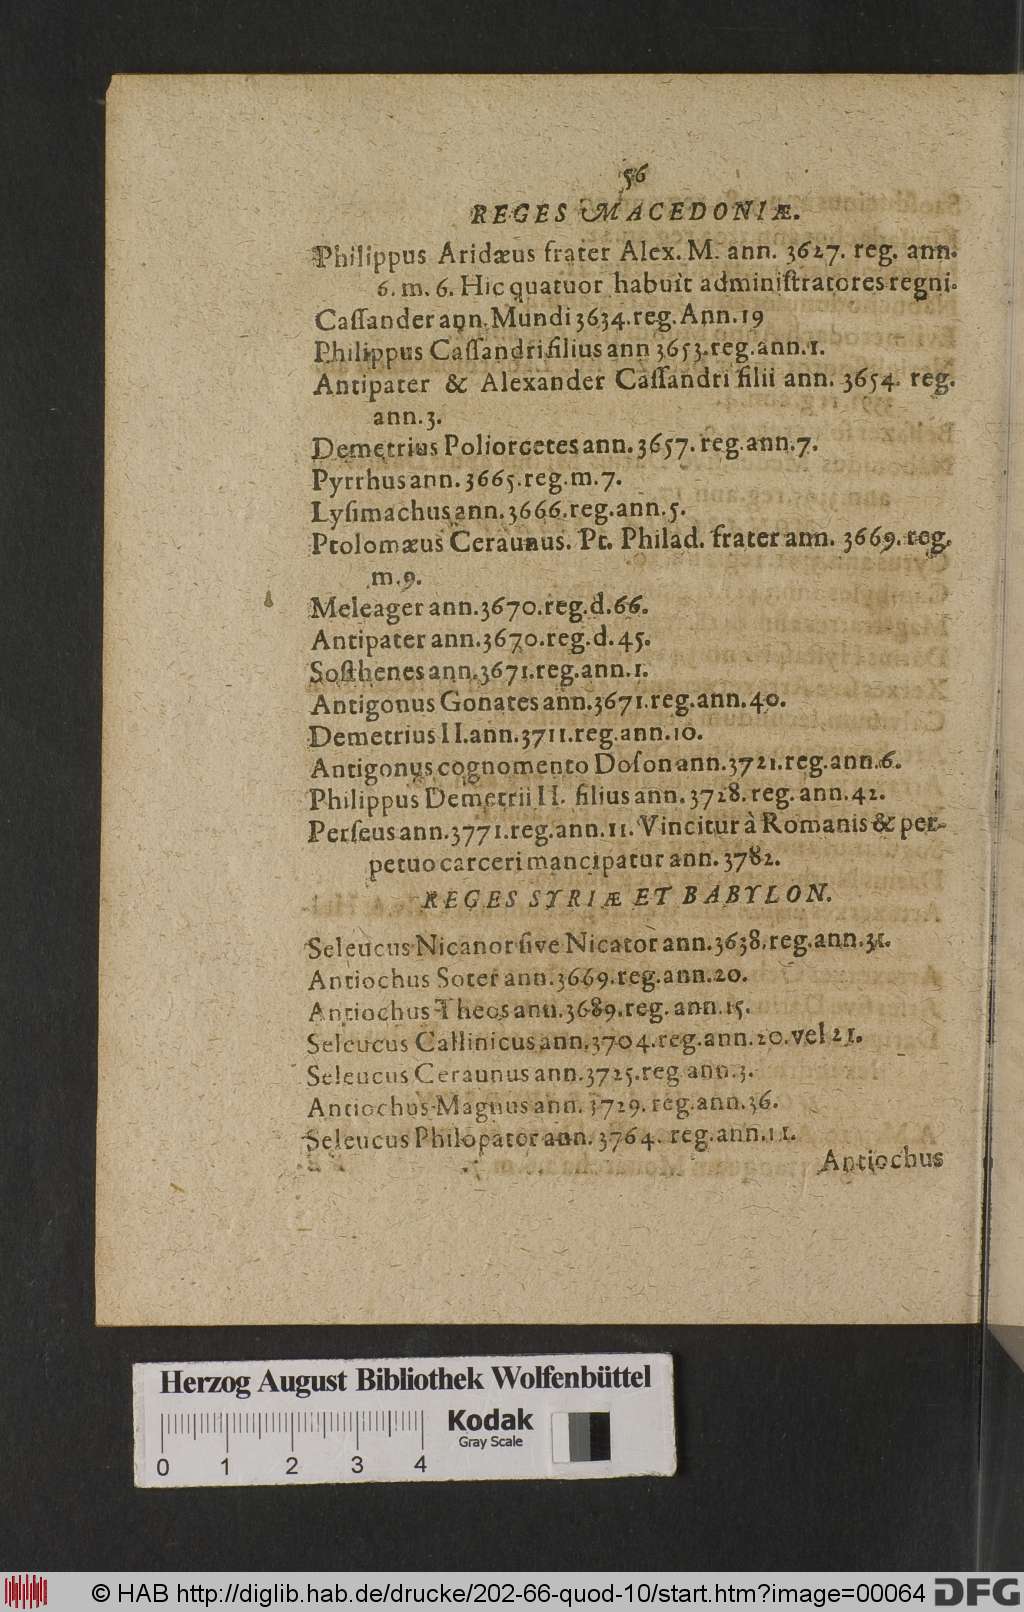 56
REGES MACEDONIÆ.
Philippus Aridæus frater Alex. M. ann. 3627. reg. ann.
6. m. 6. Hic quatuor habuit adminiſtratores regni.
Caſſander ann. Mundi 3634. reg. Ann. 19
Philippus Caſſandri filius ann 3653. reg. ann. 1.
Antipater & Alexander Caſſandri filii ann. 3654. reg.
ann. 3.
Demetrius Poliorcetes ann. 3657. reg. ann. 7.
Pyrrhus ann. 3665. reg. m. 7.
Lyſimachus ann. 3666. reg. ann. 5.
Ptolomæus Ceraunus. Pt. Philad. frater ann. 3669. reg.
m. 9.
Meleager ann. 3670. reg. d. 66.
Antipater ann. 3670. reg. d. 45.
Soſthenes ann. 3671. reg. ann. 1.
Antigonus Gonates ann. 3671. reg. ann. 40.
Demetrius II. ann. 3711. reg. ann. 10.
Antigonus cognomento Doſon ann. 3721. reg. ann. 6.
Philippus Demetrii II. filius ann. 3728. reg. ann. 42.
Perſeus ann. 3771. reg. ann. 11. Vincitur à Romanis & per-
petuo carceri mancipatur ann. 3782.
REGES SYRIÆ ET BABYLON.
Seleucus Nicanor ſive Nicator ann. 3638. reg. ann. 31.
Antiochus Soter ann. 3669. reg. ann. 20.
Antiochus Theos ann. 3689. reg. ann. 15.
Seleucus Callinicus ann. 3704. reg. ann. 20. vel 21.
Seleucus Ceraunus ann. 3725. reg ann. 3.
Antiochus Magnus ann. 3729. reg. ann. 36.
Seleucus Philopator ann. 3764. reg. ann. 11.
Antiochus
Herzog August Bibliothek Wolfenbüttel
Kodak
Gray Scale
0 1 2 3 4
© HAB http://diglib.hab.de/drucke/202-66-quod-10/start.htm?image=00064
DFG